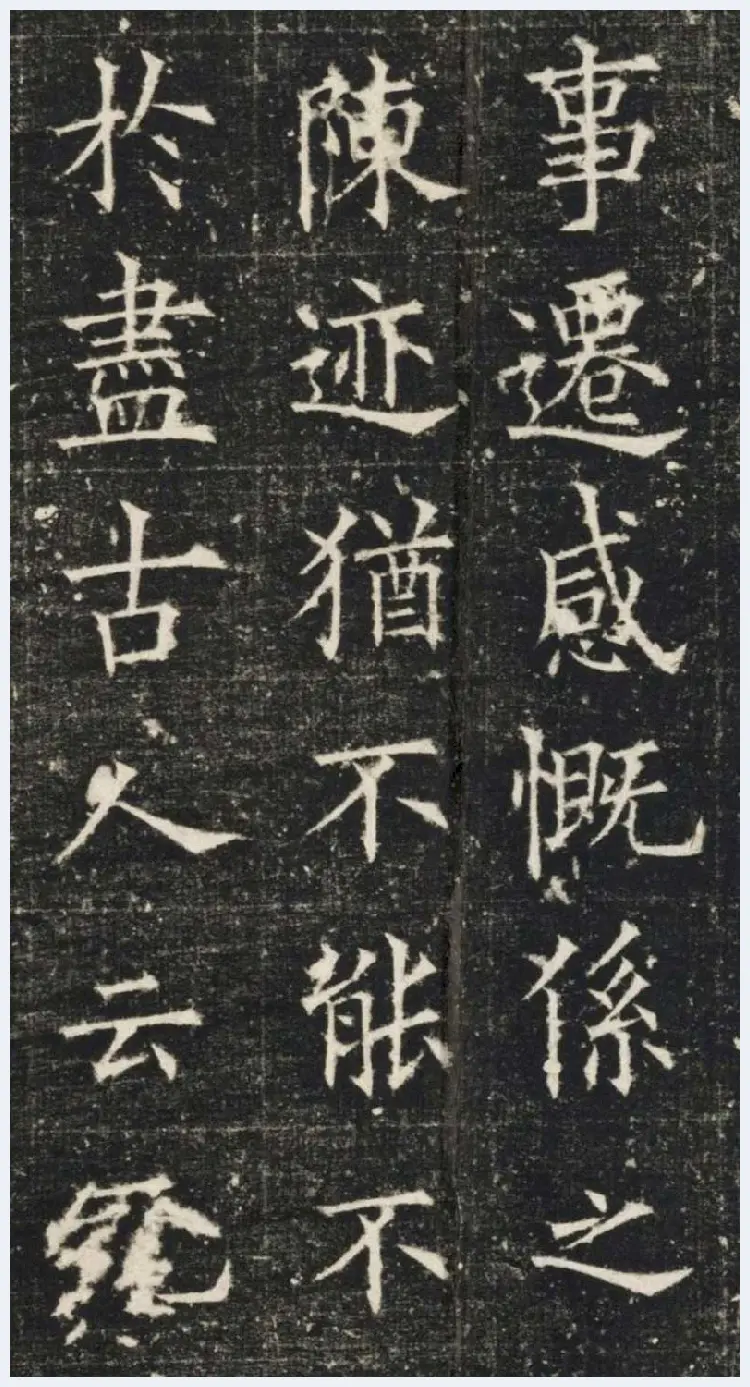 事遷感慨係之
陳迹猶不能不
於盡古人云